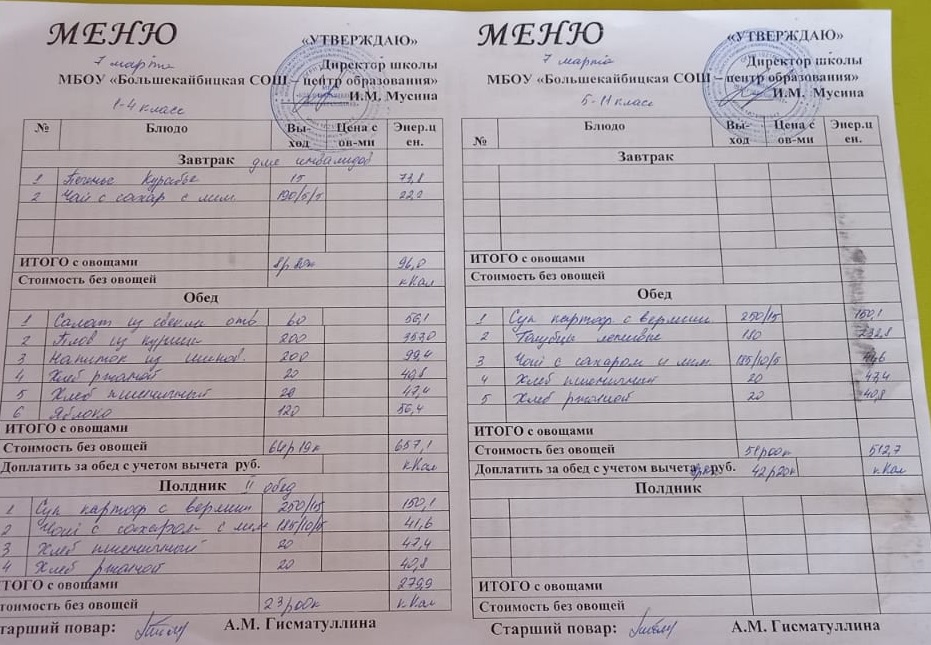 МЕНЮ
«УТВЕРЖДАЮ»
7 марта
Директор школы
МБОУ «Большекайбицкая СОШ – центр образования»
И.М. Мусина
1-4 класс
№ Блюдо Вы-ход Цена с ов-ми Энер.ц ен.
Завтрак для инвалидов
1 Печенье Курабье 15 73,8
2 Чай с сахар с лим 190/5/5 22,2
ИТОГО с овощами 96,0
Стоимость без овощей кКал
Обед
1 Салат из свеклы отв 60 56,1
2 Плов из курицы 200 357,0
3 Напиток из шипов. 200 99,4
4 Хлеб ржаной 20 40,8
5 Хлеб пшеничный 20 47,4
6 Яблоко 120 56,4
ИТОГО с овощами
Стоимость без овощей 64р19к 657,1
Доплатить за обед с учетом вычета руб. кКал
Полдник II обед
1 Суп картоф с вермиш 250/15 150,1
2 Чай с сахаром с лим 185/10/5 41,6
3 Хлеб пшеничный 20 47,4
4 Хлеб ржаной 20 40,8
ТОГО с овощами 279,9
тоимость без овощей 23р00к кКал
тарший повар: А.М. Гисматуллина
МЕНЮ
«УТВЕРЖДАЮ»
7 марта
Директор школы
МБОУ «Большекайбицкая СОШ – центр образования»
И.М. Мусина
5-11 класс
№ Блюдо Вы-ход Цена с ов-ми Энер.ц ен.
Завтрак
ИТОГО с овощами
Стоимость без овощей
Обед
1 Суп картоф с вермиш 250/15 150,1
2 Голубцы ленивые 180 232,8
3 Чай с сахаром и лим 185/10/5 41,6
4 Хлеб пшеничный 20 47,4
5 Хлеб ржаной 20 40,8
ИТОГО с овощами
Стоимость без овощей 51р00к 512,7
Доплатить за обед с учетом вычета руб. 42р20к кКал
Полдник
ИТОГО с овощами
Стоимость без овощей
Старший повар: А.М. Гисматуллина